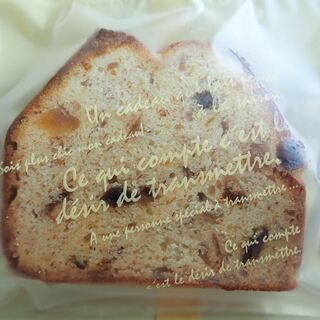 Un cadeau
à la
Sois plus chic mon cadeau!
Ce qui compte c'est le
désir de transmettre.
A une personne spécial à transmettre....
Ce qui compte
c'est le désir de transmettre.